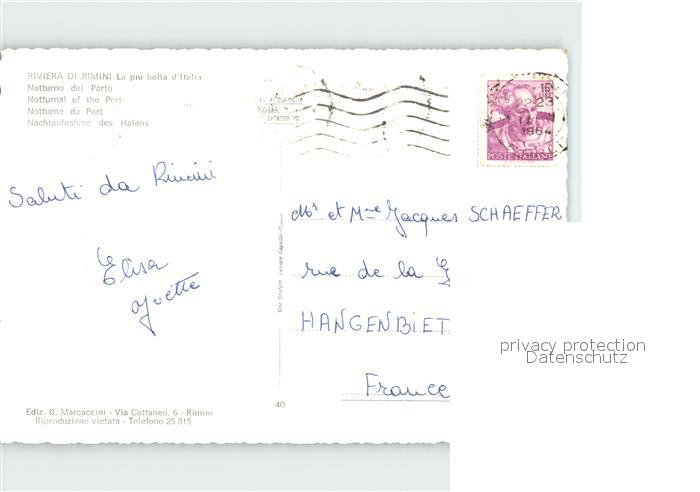 RIVIERA DI RIMINI La più bella d'Italia
Notturno del Porto
Notturnal of the Port
Notturne du Port
Nachtaufnahme des Hafens
22-23
1964
POSTE ITALIANE
Saluti da Rimini
Elisa
Yvette
Mr et Mme Jacques SCHAEFFER
rue de la
HANGENBIET
France
privacy protection
Datenschutz
Ediz. B. Marcaccini - Via Cattaneo, 6 - Rimini
Riproduzione vietata - Telefono 25.815
40